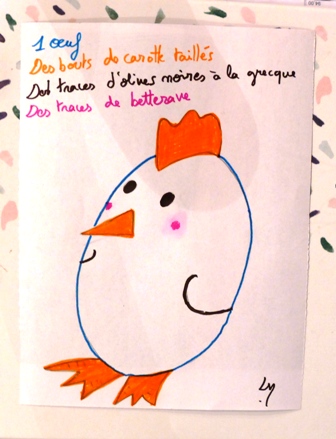 1 œuf
Des bouts de carotte taillés
Des traces d'olives noires à la grecque
Des traces de betterave